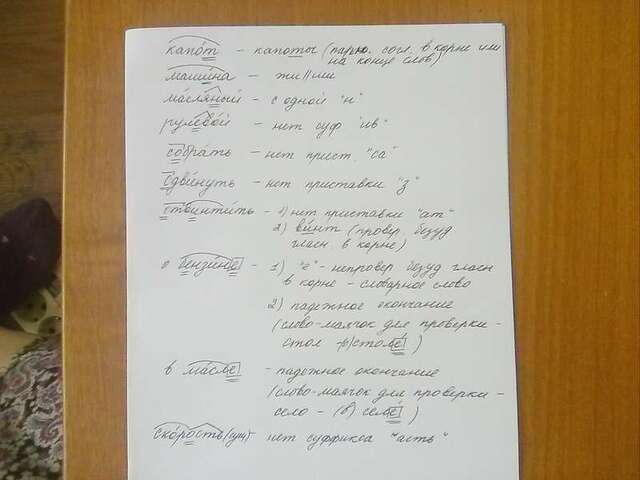 капот - капоты (парн. согл. в корне или
на конце слов)
машина - жи//ши
масляный - с одной "н"
рулевой - нет суф "ив"
собрать - нет прист. "са"
сдвинуть - нет приставки "з"
отвинтить - 1) нет приставки "ат"
2) винт (провер. безуд
гласн. в корне)
о бензине - 1) "е" - непровер безуд гласн
в корне - словарное слово
2) падежное окончание
(слово-маячок для проверки -
стол - (о) столе)
в масле - падежное окончание
(слово-маячок для проверки -
село - (в) селе)
скорость (сущ) - нет суффикса "асть"